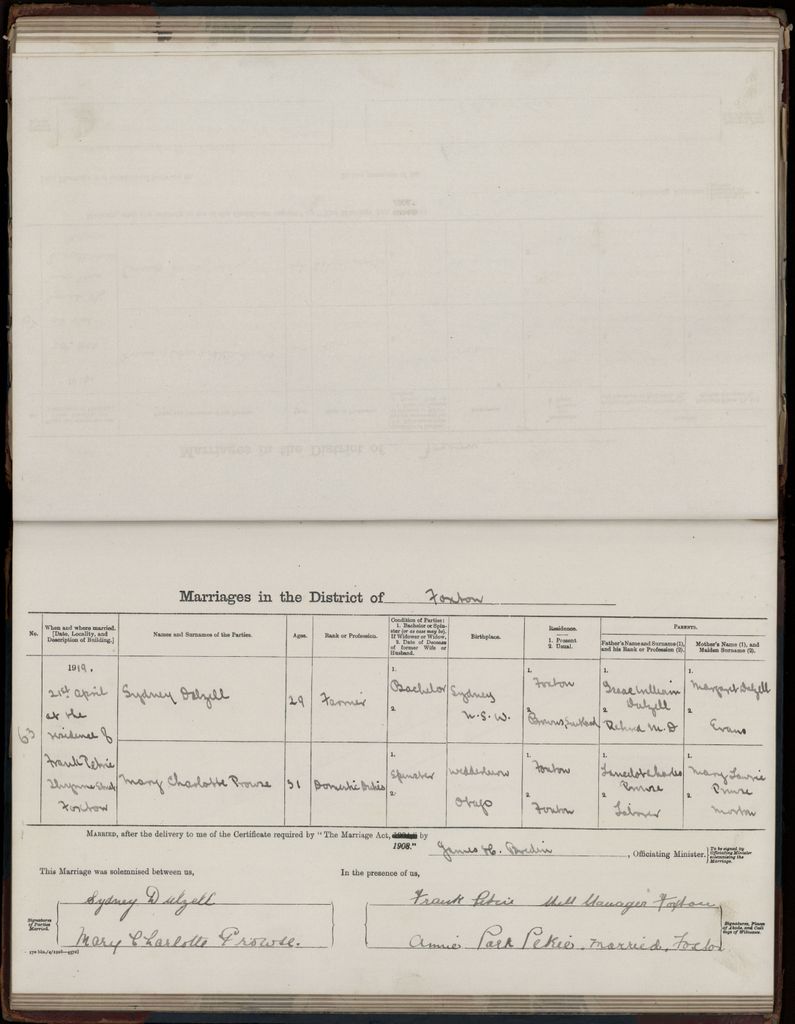 Marriages in the District of Foxton
No.
When and where married.
[Date, Locality, and
Description of Building.]
Names and Surnames of the Parties.
Ages.
Rank or Profession.
Condition of Parties:
1. Bachelor or Spin-
ster (or as case may be).
If Widower or Widow,
2. Date of Decease
of former Wife or
Husband.
Birthplace.
Residence.
1. Present.
2. Usual.
PARENTS.
Father's Name and Surname (1),
and his Rank or Profession (2).
Mother's Name (1), and
Maiden Surname (2).
63
1919.
21st April
at the
residence of
Frank Petrie
Foxton
Sydney Dalzell
29
Farmer
1.
Bachelor
2.
Sydney
N.S.W.
1.
Foxton
2.
1.
Isaac William
Dalzell
2.
Retired M.D
1.
Margaret Dalzell
2.
Evans
Mary Charlotte Prowse
31
Domestic Duties
1.
Spinster
2.
Wedderburn
Otago
1.
Foxton
2.
Foxton
1.
Lancelot Charles
Prowse
2.
Laborer
1.
Mary Lawrie
Prowse
2.
Morton
MARRIED, after the delivery to me of the Certificate required by "The Marriage Act, by
1908." James H. , Officiating Minister.
[To be signed by
Officiating Minister
solemnizing the
Marriage.
This Marriage was solemnised between us,
In the presence of us,
Signatures
of Parties
Married.
Sydney Dalzell
Mary Charlotte Prowse.
Frank Petrie Mill Manager Foxton
Annie Park Petrie, Married, Foxton
Signatures, Places
of Abode, and Call-
ings of Witnesses.